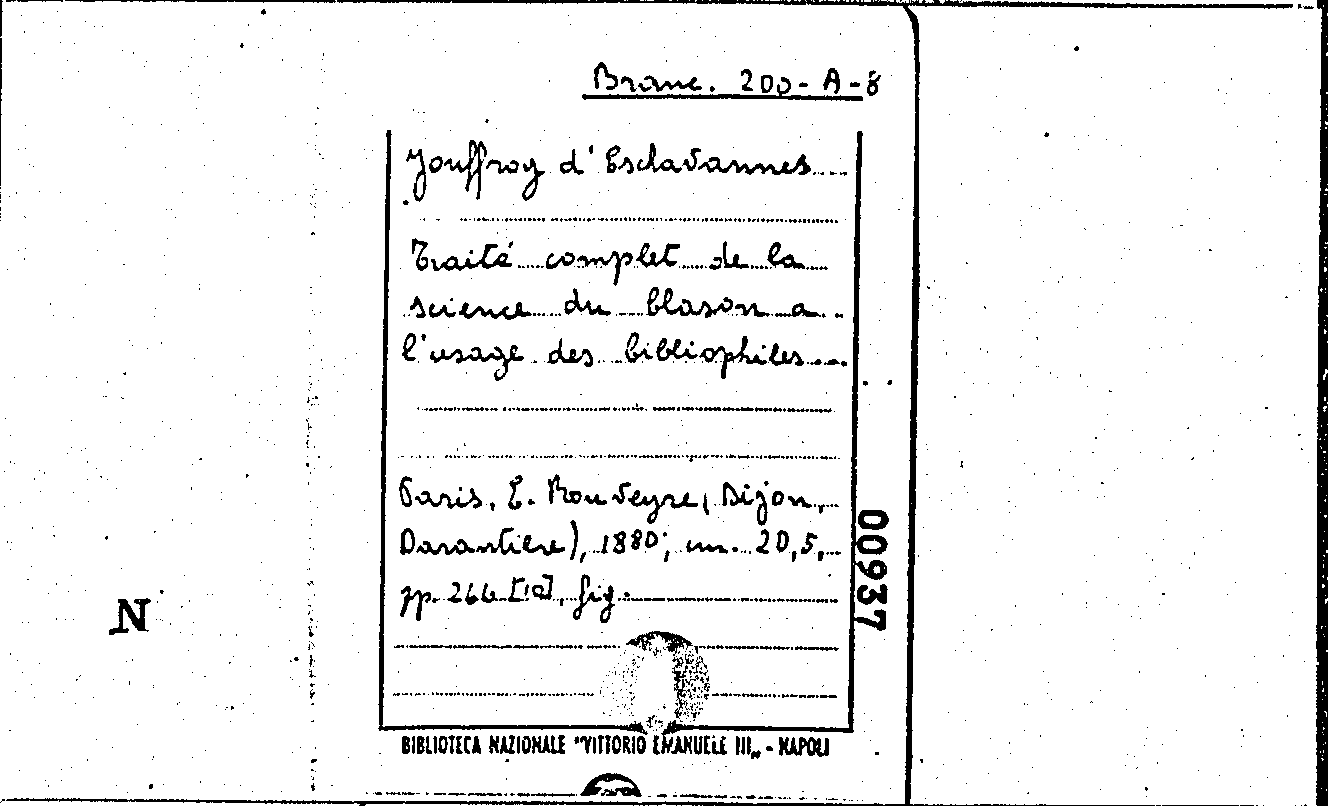 Branc. 200-A-8
Jouffroy d'Esclavannes
Traité complet de la
science du blason a
l'usage des bibliophiles...
Paris, E. Rouveyre, (Dijon,
Darantiere), 1880; cm. 20,5,
pp. 266 [10], fig.
00937
N
BIBLIOTECA NAZIONALE "VITTORIO EMANUELE III„ - NAPOLI